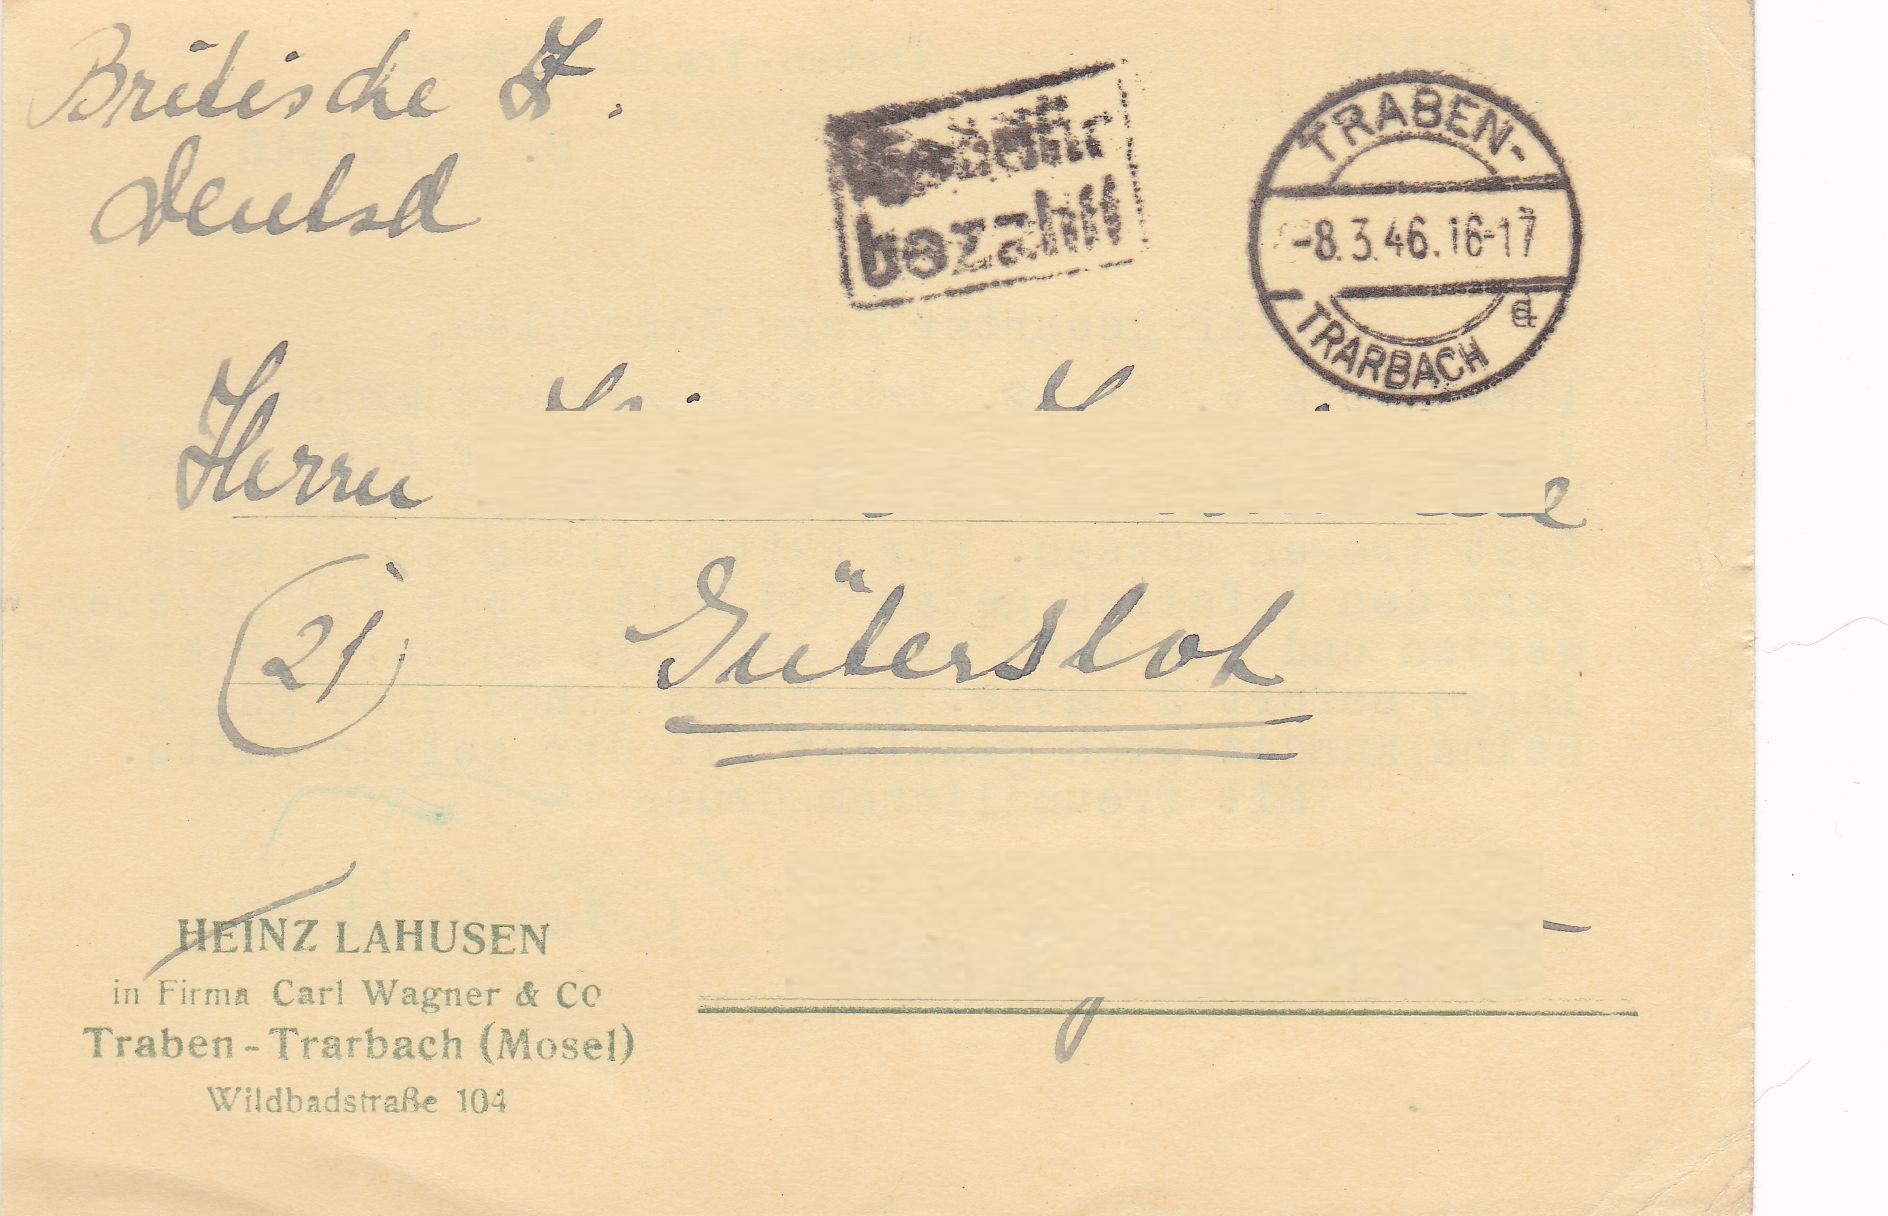 Britische Z.
Deutsd
Gebühr
bezahlt
TRABEN-
-8.3.46.16-17
TRARBACH
d
Herrn
(21) Gütersloh
HEINZ LAHUSEN
in Firma Carl Wagner & Co
Traben-Trarbach (Mosel)
Wildbadstraße 104